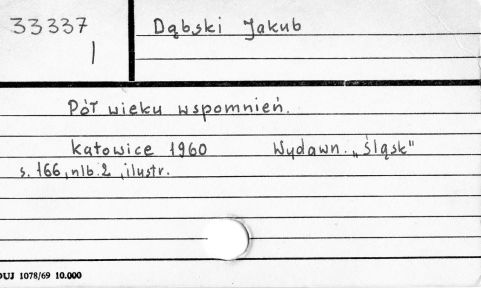 33337
I
Dąbski Jakub
Pół wieku wspomnień.
Katowice 1960 Wydawn. „Śląsk"
s. 166, nlb. 2, ilustr.
DUJ 1078/69 10.000